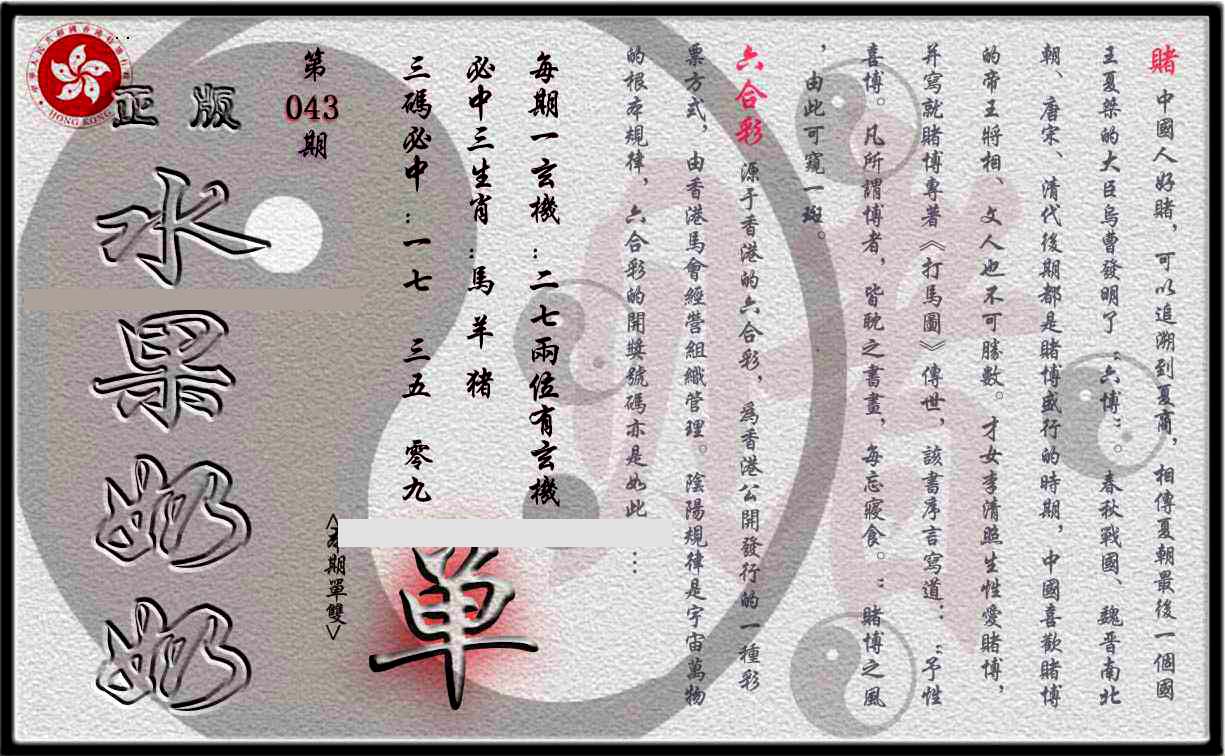 賭 中國人好賭，可以追溯到夏商，相傳夏朝最後一個國
王夏桀的大臣烏曹發明了“六博”。春秋戰國、魏晉南北
朝、唐宋、清代後期都是賭博盛行的時期，中國喜歡賭博
的帝王將相、文人也不可勝數。才女李清照生性愛賭博，
并寫就賭博專著《打馬圖》傳世，該書序言寫道：“予性
喜博。凡所謂博者，皆耽之書畫，每忘寢食。“賭博之風
，由此可窺一斑。
六合彩 源于香港的六合彩，為香港公開發行的一種彩
票方式，由香港馬會經營組織管理。陰陽規律是宇宙萬物
的根本規律，六合彩的開獎號碼亦是如此…
每期一玄機：二七兩位有玄機
必中三生肖：馬 羊 猪
三碼必中：一七 三五 零九
<本期單雙>
單
第
043
期
正版
水果奶奶
HONG KONG